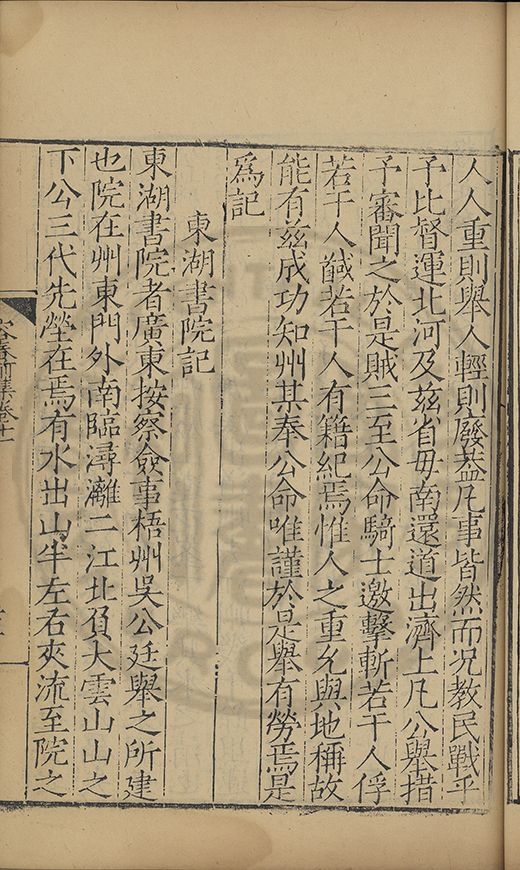 人人重則舉人輕則廢葢凡事皆然而况教民戰乎
予比督運北河及茲省毋南還道出濟上凡公舉措
予審聞之於是賊三至公命騎士邀擊斬若干人俘
若干人馘若干人有籍紀焉惟人之重允與地稱故
能有茲成功知州某奉公命唯謹於是舉有勞焉是
爲記
東湖書院記
東湖書院者廣東按察僉事梧州吳公廷舉之所建
也院在州東門外南臨潯灕二江北負大雲山山之
下公三代先塋在焉有水出山半左右夾流至院之
容春前集卷十